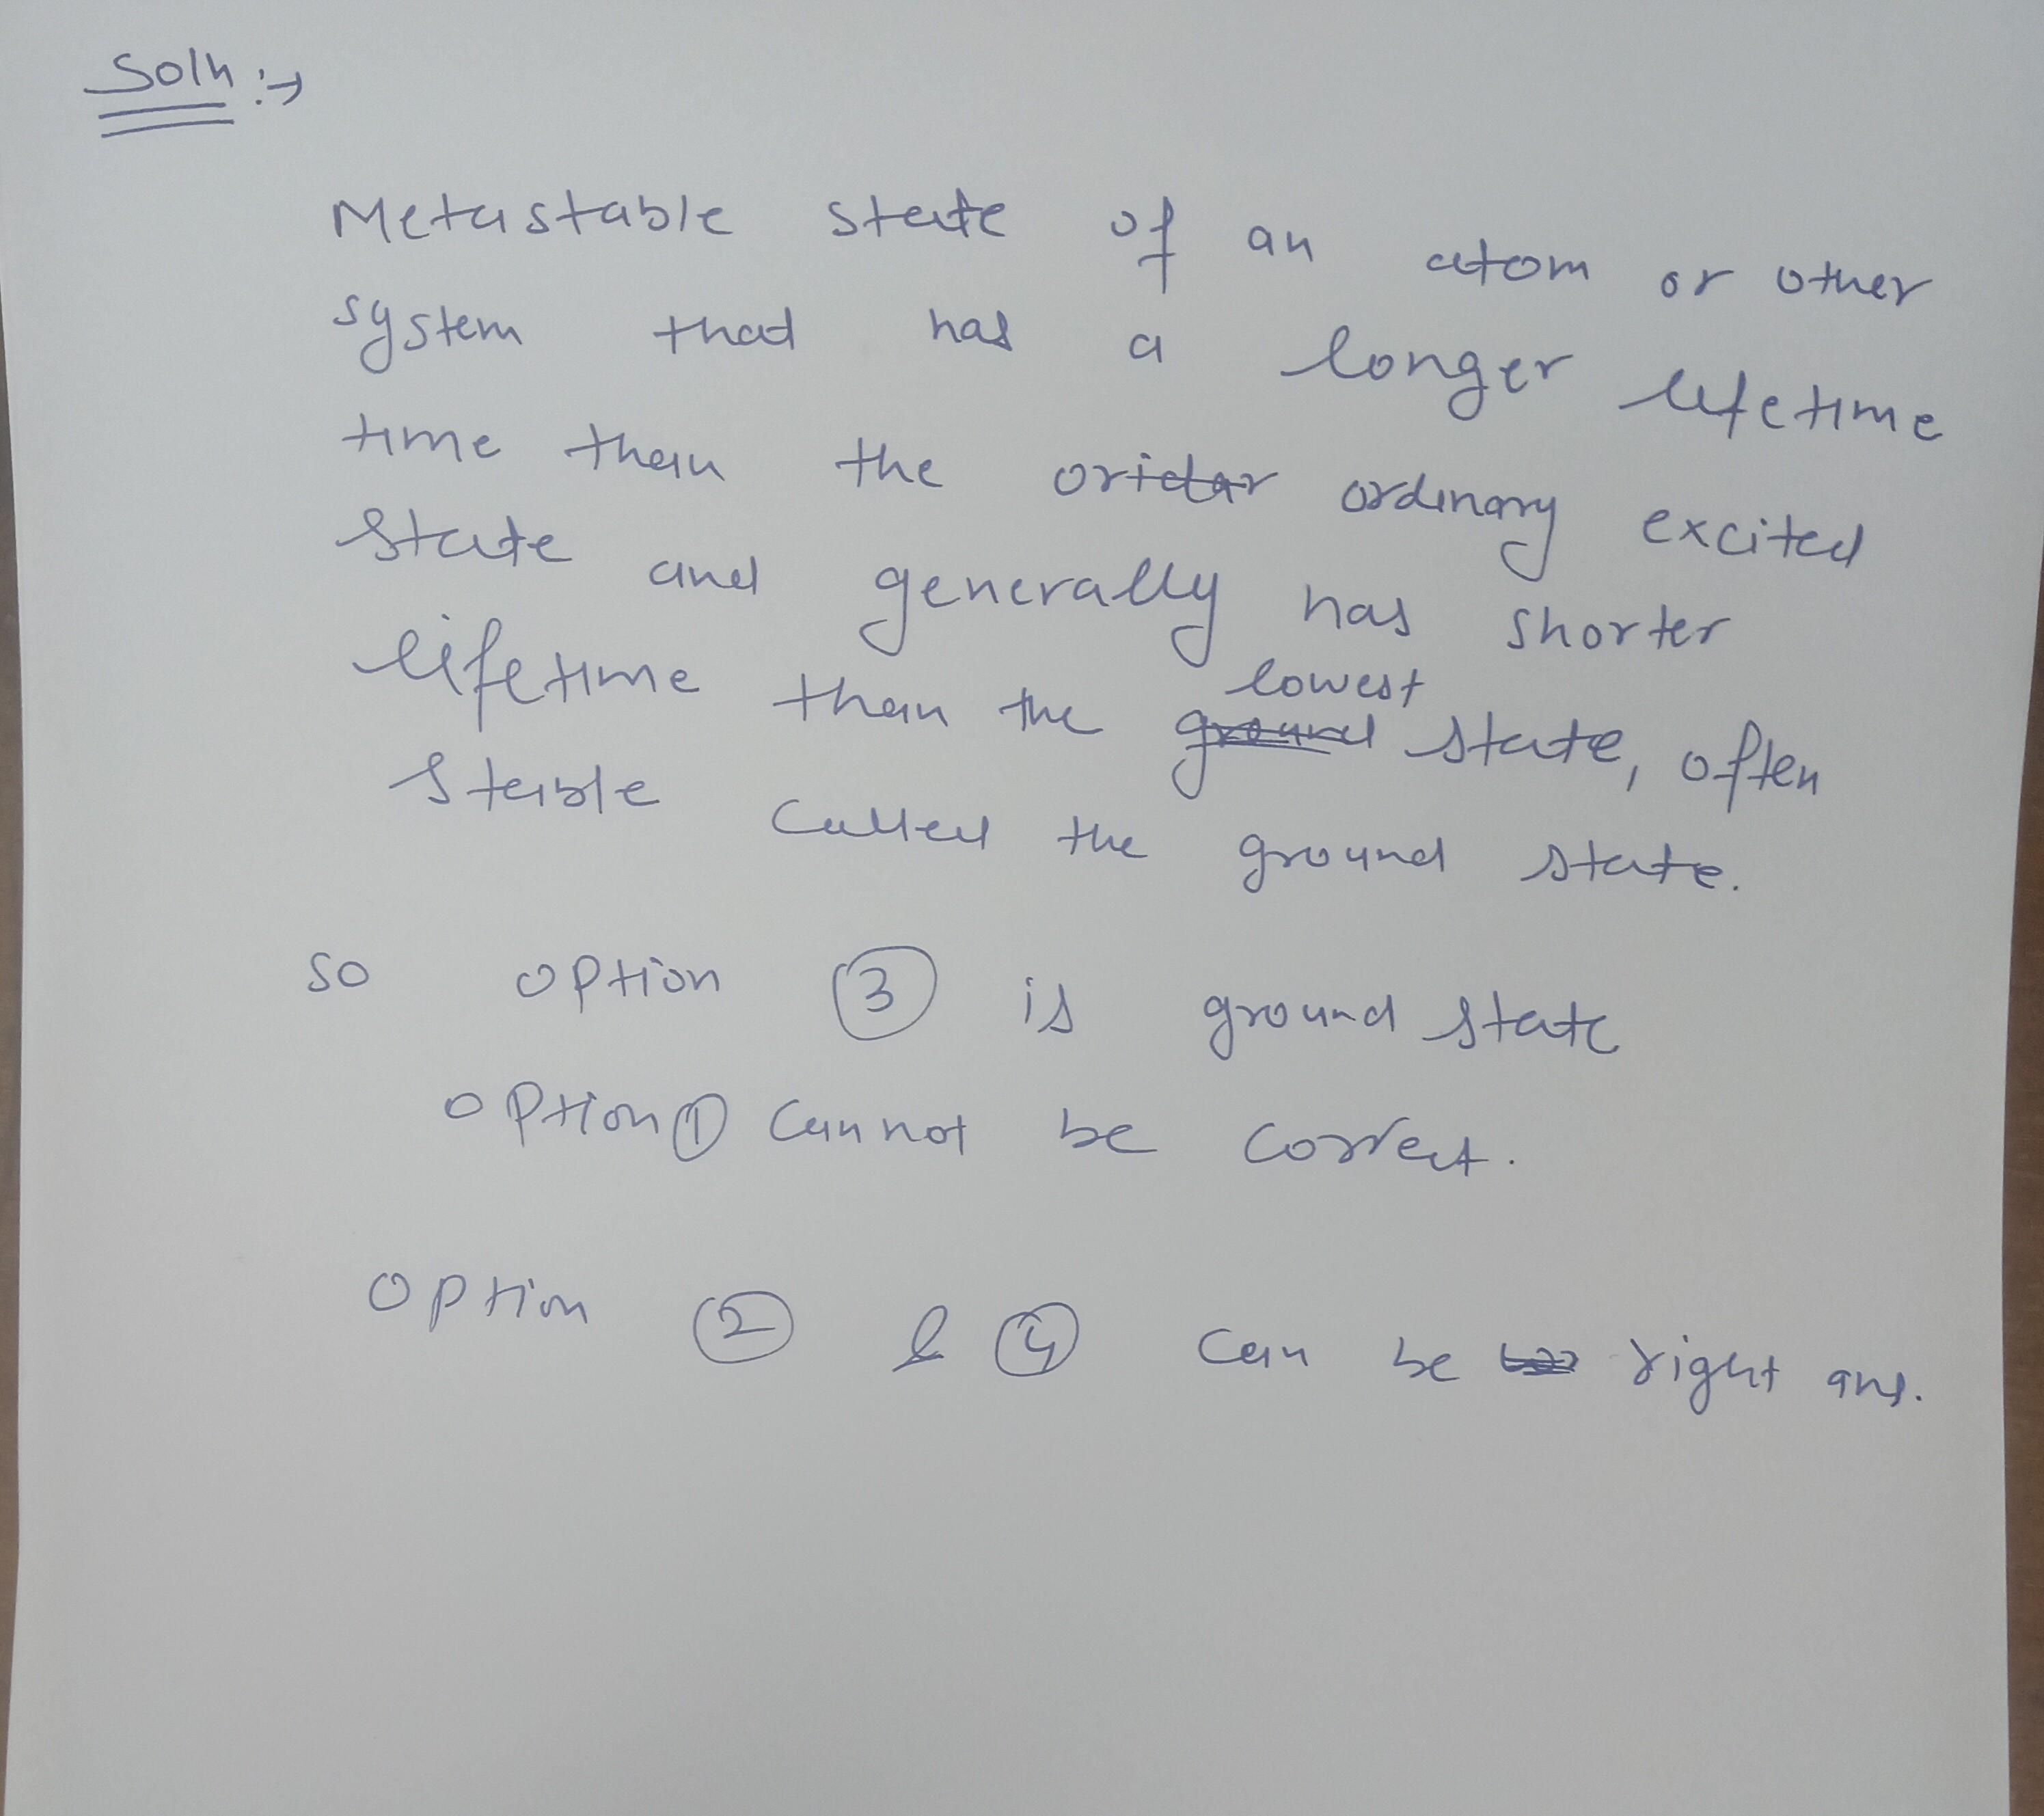 Soln :→
Metastable state of an atom or other
system that has a longer lifetime
time than the ordinary excited
state and generally has shorter
lifetime than the lowest ground state, often
stable called the ground state.
so option ③ is ground state
option ① cannot be correct.
option ② & ④ can be right ans.